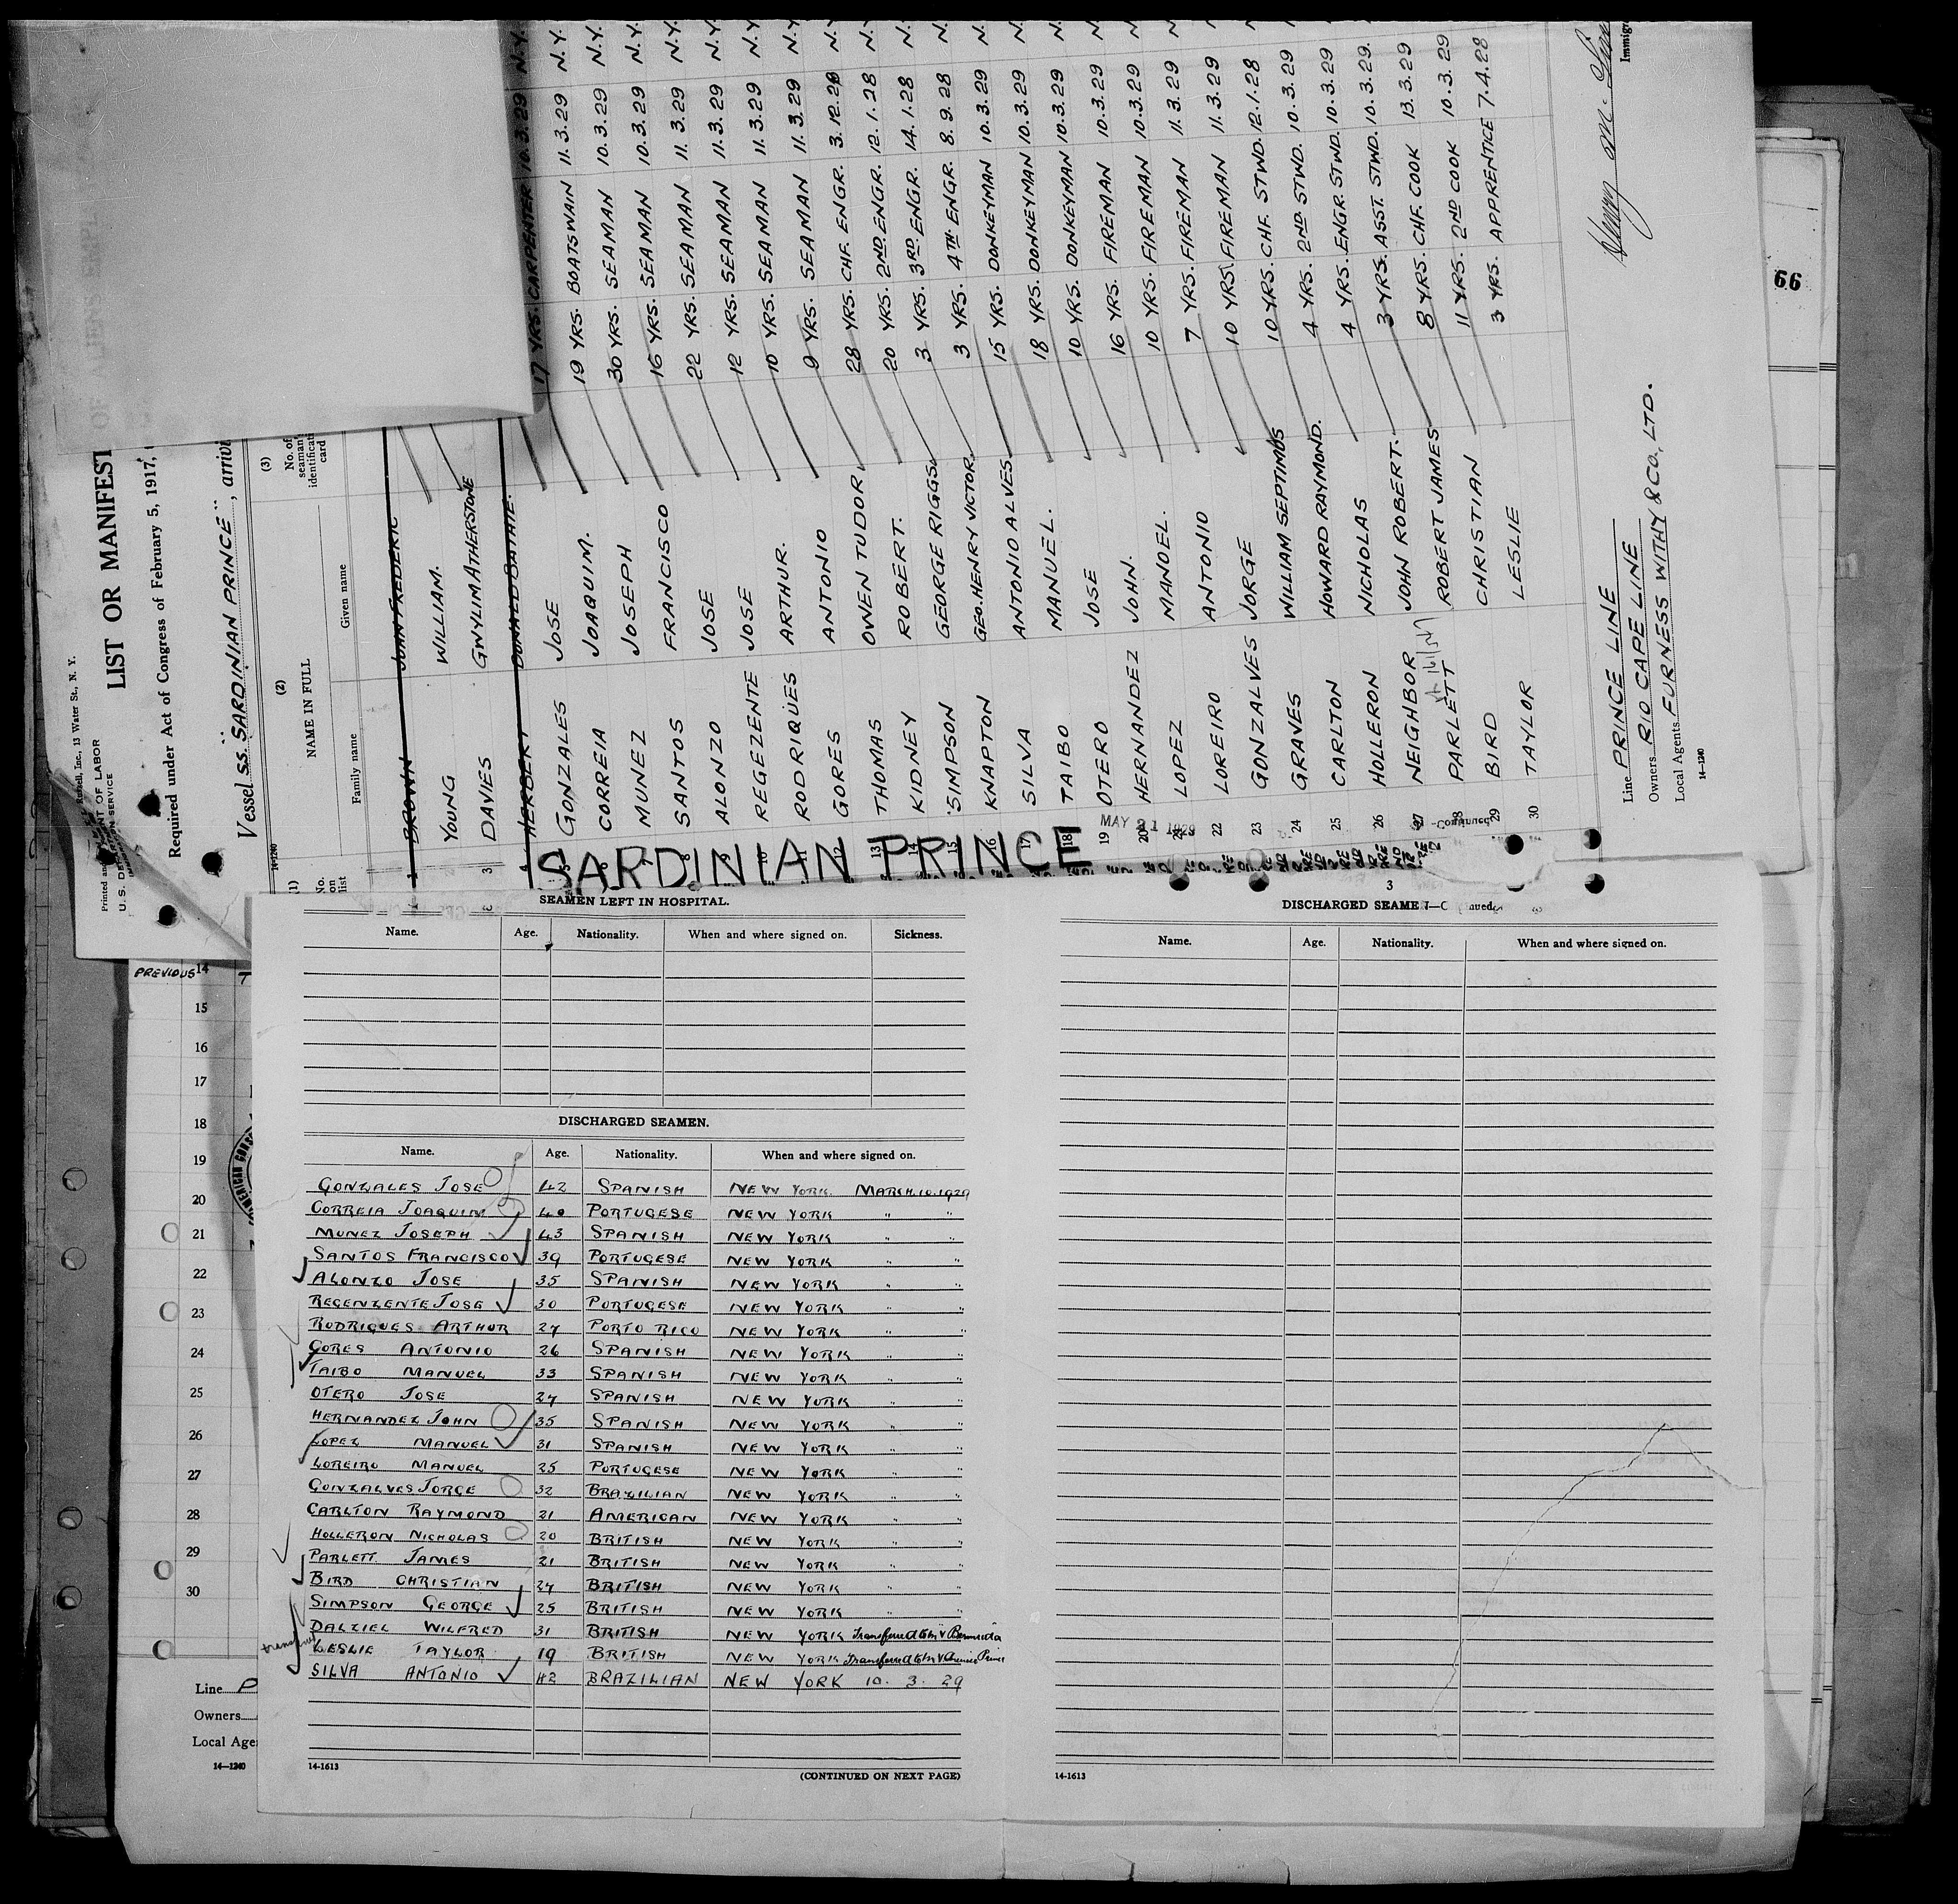 Printed and Sold by Russell, Inc., 13 Water St., N. Y.
U. S. DEPARTMENT OF LABOR
IMMIGRATION SERVICE
LIST OR MANIFEST OF
Required under Act of Congress of February 5, 1917,
Vessel SS. "SARDINIAN PRINCE", arrivi
14-1240
(1) (2) (3)
No. on list NAME IN FULL No. of seaman's identification card
Family name Given name
1 BROWN JOHN FREDERIC
2 YOUNG WILLIAM.
3 DAVIES GWYLIM ATHERSTONE
4 HERBERT DONALD BATHIE. 17 YRS. CARPENTER 10.3.29 N.Y.
5 GONZALES JOSE 19 YRS. BOATSWAIN 11.3.29 N.Y.
6 CORREIA JOAQUIM. 30 YRS. SEAMAN 10.3.29 N.Y.
7 MUNEZ JOSEPH 16 YRS. SEAMAN 10.3.29 N.Y.
8 SANTOS FRANCISCO 22 YRS. SEAMAN 11.3.29 N.Y.
9 ALONZO JOSE 12 YRS. SEAMAN 11.3.29 N.Y.
10 REGEZENTE JOSE 10 YRS. SEAMAN 11.3.29 N.Y.
11 RODRIQUES ARTHUR. 9 YRS. SEAMAN 11.3.29 N.Y.
12 GORES ANTONIO 28 YRS. CHF. ENGR. 3.12.28 N.Y.
13 THOMAS OWEN TUDOR 20 YRS. 2ND. ENGR. 12.1.28 N.
14 KIDNEY ROBERT. 3 YRS. 3RD. ENGR. 14.1.28 N.
15 SIMPSON GEORGE RIGGS. 3 YRS. 4TH. ENGR. 8.9.28 N.
16 KNAPTON GEO. HENRY VICTOR. 15 YRS. DONKEYMAN 10.3.29 N.
17 SILVA ANTONIO ALVES 18 YRS. DONKEYMAN 10.3.29 N.
18 TAIBO MANUEL. 10 YRS. DONKEYMAN 10.3.29 N.
19 OTERO JOSE 16 YRS. FIREMAN 10.3.29 N.
20 HERNANDEZ JOHN. 10 YRS. FIREMAN 10.3.29 N.
21 LOPEZ MANOEL. 7 YRS. FIREMAN 11.3.29
22 LOREIRO ANTONIO 10 YRS. FIREMAN 11.3.29
23 GONZALVES JORGE 10 YRS. CHF. STWD. 12.1.28
24 GRAVES WILLIAM SEPTIMUS 4 YRS. 2ND STWD. 10.3.29
25 CARLTON HOWARD RAYMOND. 4 YRS. ENGR. STWD. 10.3.29
26 HOLLERON NICHOLAS 3 YRS. ASST. STWD. 10.3.29.
27 NEIGHBOR JOHN ROBERT. 8 YRS. CHF. COOK 13.3.29
28 PARLETT ROBERT JAMES 11 YRS. 2ND COOK 10.3.29
29 BIRD CHRISTIAN 3 YRS. APPRENTICE 7.4.28
30 TAYLOR LESLIE
Line PRINCE LINE
Owners RIO CAPE LINE
Local Agents FURNESS WITHY & CO., LTD.
14-1240
Immigr
66
MAY 21 1929
SARDINIAN PRINCE
3
SEAMEN LEFT IN HOSPITAL.
Name. Age. Nationality. When and where signed on. Sickness.
DISCHARGED SEAMEN.
Name. Age. Nationality. When and where signed on.
GONZALES JOSE 42 SPANISH NEW YORK. MARCH.10.1929
CORREIA JOAQUIM 40 PORTUGESE NEW YORK " "
MUNEZ JOSEPH 43 SPANISH NEW YORK " "
SANTOS FRANCISCO 39 PORTUGESE NEW YORK " "
ALONZO JOSE 35 SPANISH NEW YORK " "
REGENZENTE JOSE 30 PORTUGESE NEW YORK " "
RODRIGUES ARTHUR 27 PORTO RICO NEW YORK " "
GORES ANTONIO 26 SPANISH NEW YORK " "
TAIBO MANUEL 33 SPANISH NEW YORK " "
OTERO JOSE 27 SPANISH NEW YORK " "
HERNANDEZ JOHN 35 SPANISH NEW YORK " "
LOPEZ MANUEL 31 SPANISH NEW YORK " "
LOREIRO MANUEL 25 PORTUGESE NEW YORK " "
GONZALVES JORGE 32 BRAZILIAN NEW YORK " "
CARLTON RAYMOND 21 AMERICAN NEW YORK " "
HOLLERON NICHOLAS 20 BRITISH NEW YORK " "
PARLETT JAMES 21 BRITISH NEW YORK " "
BIRD CHRISTIAN 27 BRITISH NEW YORK " "
SIMPSON GEORGE 25 BRITISH NEW YORK " "
DALZIEL WILFRED 31 BRITISH NEW YORK Transferred to M V Bermuda
LESLIE TAYLOR 19 BRITISH NEW YORK Transferred to M V Prince
SILVA ANTONIO 42 BRAZILIAN NEW YORK 10. 3. 29
14-1613
(CONTINUED ON NEXT PAGE)
DISCHARGED SEAMEN—Continued.
Name. Age. Nationality. When and where signed on.
14-1613
PREVIOUS 14 T
15
16
17
18
19
20
21
22
23
24
25
26
27
28
29
30
AMERICAN CONS
Line P
Owners
Local Age
14-1240